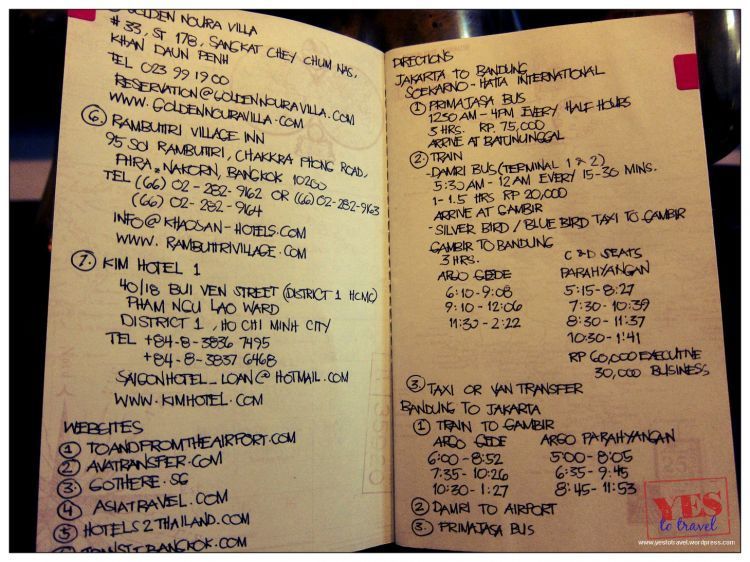 GOLDEN NOURA VILLA
# 33, ST 178, SANGKAT CHEY CHUM NAS,
KHAN DAUN PENH
TEL 023 99 19 00
RESERVATION@GOLDENNOURAVILLA.COM
WWW.GOLDENNOURAVILLA.COM
6. RAMBUTTRI VILLAGE INN
95 SOI RAMBUTTRI, CHAKKRA PHONG ROAD,
PHRA NAKORN, BANGKOK 10200
TEL (66) 02-282-9162 OR (66) 02-282-9163
(66) 02-282-9164
INFO@KHAOSAN-HOTELS.COM
WWW.RAMBUTTRIVILLAGE.COM
7. KIM HOTEL 1
40/18 BUI VEN STREET (DISTRICT 1 HCMC)
PHAM NGU LAO WARD
DISTRICT 1, HO CHI MINH CITY
TEL +84-8-3836 7495
+84-8-3837 6468
SAIGONHOTEL_LOAN@HOTMAIL.COM
WWW.KIMHOTEL.COM
WEBSITES
1 TOANDFROMTHEAIRPORT.COM
2 AVATRANSFER.COM
3 GOTHERE.SG
4 ASIATRAVEL.COM
5 HOTELS2THAILAND.COM
DIRECTIONS
JAKARTA TO BANDUNG
SOEKARNO-HATTA INTERNATIONAL
1 PRIMAJASA BUS
1230AM-4PM EVERY HALF HOURS
3 HRS. RP. 75,000
ARRIVE AT BATUNUNGGAL
2. TRAIN
-DAMRI BUS (TERMINAL 1 & 2)
5:30AM-12AM EVERY 15-30 MINS.
1-1.5 HRS RP 20,000
ARRIVE AT GAMBIR
-SILVER BIRD / BLUE BIRD TAXI TO GAMBIR
GAMBIR TO BANDUNG
3 HRS. C & D SEATS
ARGO GEDE PARAHYANGAN
6:10-9:08 5:15-8:27
9:10-12:06 7:30-10:39
11:30-2:22 8:30-11:37
10:30-1:41
RP 60,000 EXECUTIVE
30,000 BUSINESS
3. TAXI OR VAN TRANSFER
BANDUNG TO JAKARTA
1 TRAIN TO GAMBIR
ARGO GEDE ARGO PARAHYANGAN
6:00-8:52 5:00-8:05
7:35-10:26 6:35-9:45
10:30-1:27 8:45-11:53
2 DAMRI TO AIRPORT
3. PRIMAJASA BUS
YES
to travel
www.yestotravel.wordpress.com